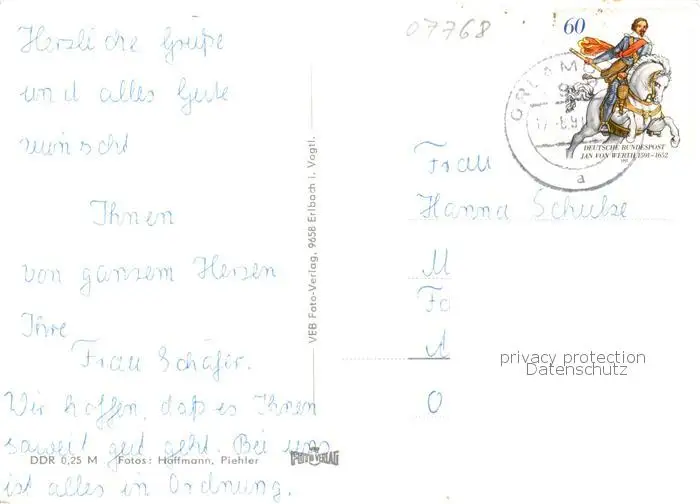 07768
60
DEUTSCHE BUNDESPOST
JAN VON WERTH 1591-1652
a
Herzliche Grüße
und alles Gute
wünscht
Ihnen
von ganzem Herzen
Ihre
Frau Schäfer.
Wir hoffen, daß es Ihnen
soweit gut geht. Bei uns
ist alles in Ordnung.
Frau
Hanna Schulze
M
Fo
O
privacy protection
Datenschutz
VEB Foto-Verlag, 9658 Erlbach i. Vogtl.
DDR 0,25 M Fotos: Hoffmann, Piehler
FOTO VERLAG